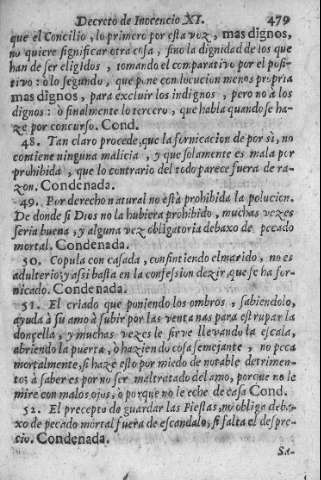 Decreto de Inocencio XI. 479
que el Concilio, lo primero por esta voz, mas dignos,
no quiere significar otra cosa, sino la dignidad de los que
han de ser eligidos, tomando el comparativo por el posi-
tivo: ò lo segundo, que pone con locucion menos propria
mas dignos, para excluir los indignos, pero no à los
dignos: ò finalmente lo tercero, que habla quando se ha-
ze por concurso. Cond.
48. Tan claro procede, que la fornicacion de por si, no
contiene ninguna malicia, y que solamente es mala por
prohibida, que lo contrario del todo parece fuera de ra-
zon. Condenada.
49. Por derecho natural no està prohibida la polucion.
De donde si Dios no la hubiera prohibido, muchas vezes
seria buena, y alguna vez obligatoria debaxo de pecado
mortal. Condenada.
50. Copula con casada, consintiendo el marido, no es
adulterio; y assi basta en la confession dezir, que se ha for-
nicado. Condenada.
51. El criado que poniendo los ombros, sabiendolo,
ayuda à su amo à subir por las ventanas para estrupar la
donçella, y muchas vezes le sirve llevando la escala,
abriendo la puerta, ò haziendo cosa semejante, no peca
mortalmente, si haze esto por miedo de notable detrimen-
to: à saber es por no ser maltratado del amo, porque no le
mire con malos ojos, ò porque no le eche de casa Cond.
52. El precepto de guardar las Fiestas, no obliga deba-
xo de pecado mortal fuera de escandalo, si falta el despre-
cio. Condenada.
Sa-